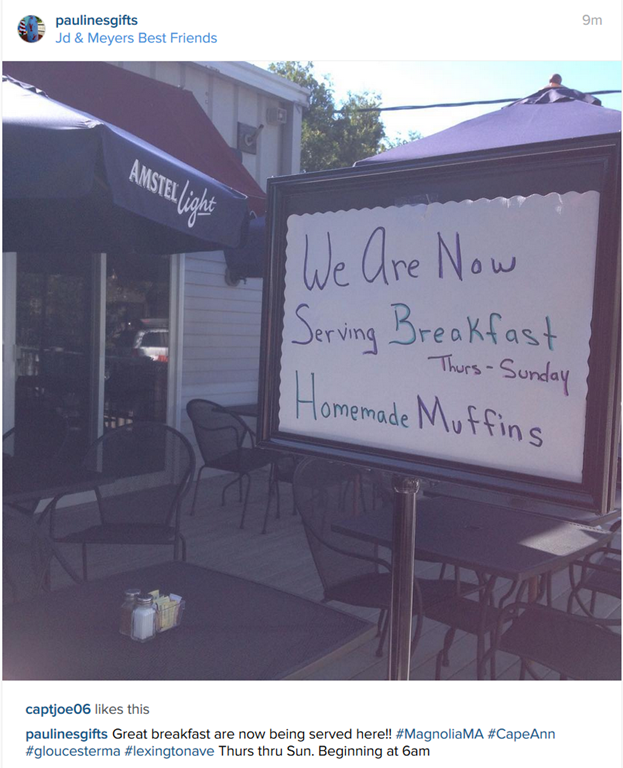 paulinesgifts
9m
Jd & Meyers Best Friends
AMSTEL Light
We Are Now
Serving Breakfast
Thurs - Sunday
Homemade Muffins
captjoe06 likes this
paulinesgifts Great breakfast are now being served here!! #MagnoliaMA #CapeAnn
#gloucesterma #lexingtonave Thurs thru Sun. Beginning at 6am